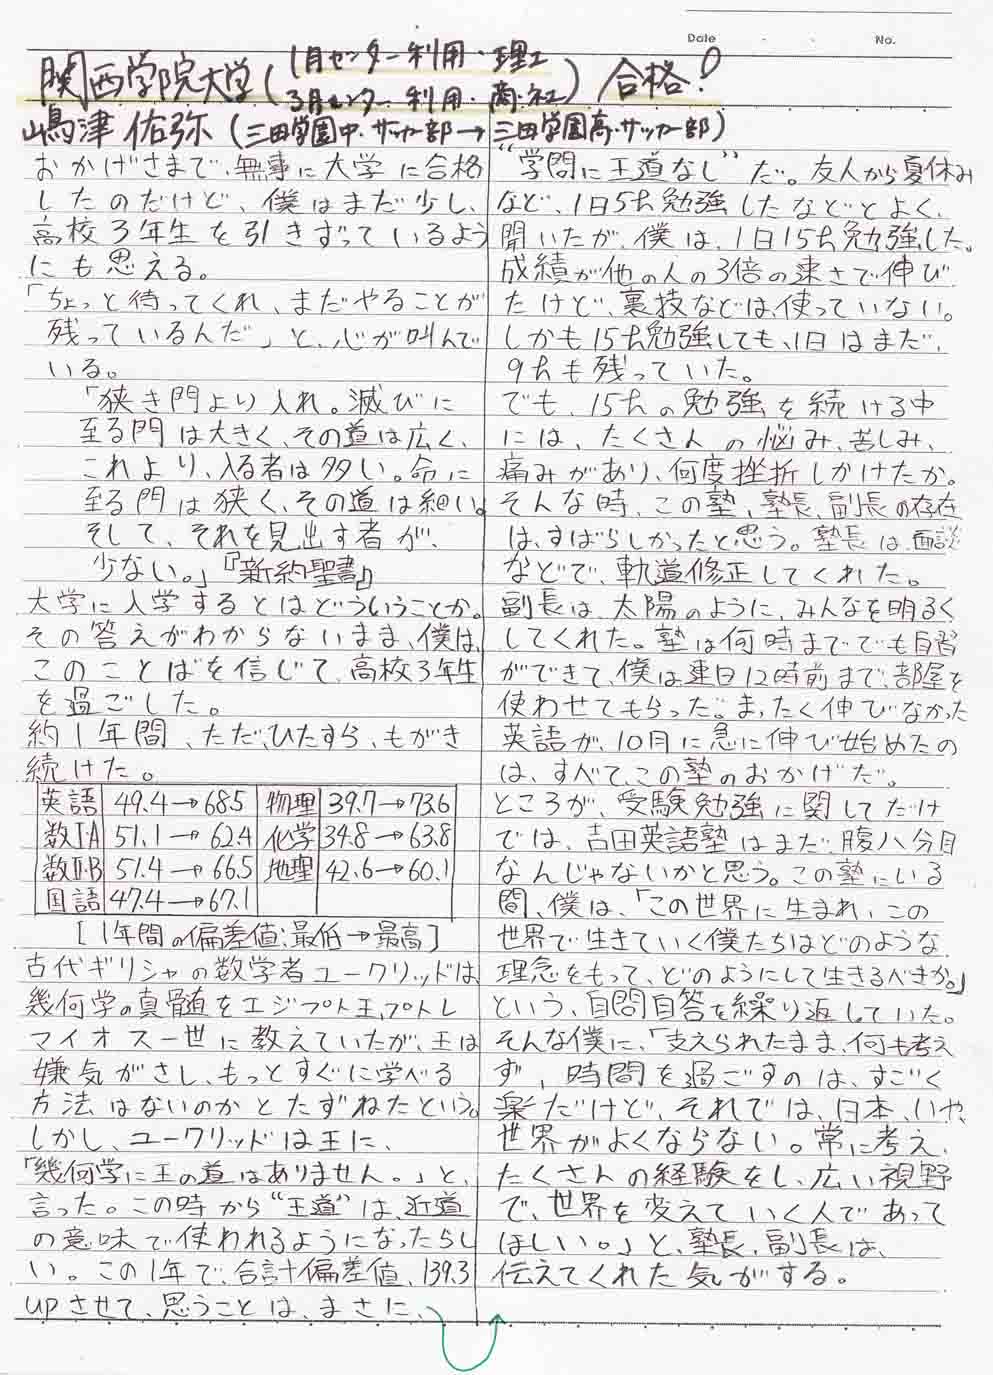 Date　・　・　No.
関西学院大学(1月センター利用・理工
3月センター利用・商・社)合格!
嶋津 佑弥(三田学園中・サッカー部→三田学園高・サッカー部)
おかげさまで、無事に大学に合格
したのだけど、僕はまだ少し、
高校3年生を引きずっているよう
にも思える。
「ちょっと待ってくれ、まだやることが
残っているんだ」と、心が叫んで
いる。
「狭き門より入れ。滅びに
至る門は大きく、その道は広く、
これより、入る者は多い。命に
至る門は狭く、その道は細い。
そして、それを見出す者が、
少ない。」『新約聖書』
大学に入学するとはどういうことか。
その答えがわからないまま、僕は、
このことばを信じて、高校3年生
を過ごした。
約1年間、ただ、ひたすら、もがき
続けた。
英語 49.4→68.5 物理 39.7→73.6
数I・A 51.1→62.4 化学 34.8→63.8
数II・B 51.4→66.5 地理 42.6→60.1
国語 47.4→67.1
[1年間の偏差値:最低→最高]
古代ギリシャの数学者ユークリッドは、
幾何学の真髄をエジプト王、プトレ
マイオス一世に教えていたが、王は
嫌気がさし、もっとすぐに学べる
方法はないのかとたずねたという。
しかし、ユークリッドは王に、
「幾何学に王の道はありません。」と、
言った。この時から“王道”は、近道
の意味で使われるようになったらし
い。この1年で、合計偏差値、139.3
upさせて、思うことは、まさに、
“学問に王道なし”だ。友人から夏休み
など、1日5h勉強したなどとよく、
聞いたが、僕は、1日15h勉強した。
成績が他の人の3倍の速さで伸び
たけど、裏技などは、使っていない。
しかも15h勉強しても、1日はまだ、
9hも残っていた。
でも、15hの勉強を続ける中
には、たくさんの悩み、苦しみ、
痛みがあり、何度挫折しかけたか。
そんな時、この塾、塾長、副長の存在
は、すばらしかったと思う。塾長は、面談
などで、軌道修正してくれた。
副長は、太陽のように、みんなを明るく
してくれた。塾は何時まででも自習
ができて、僕は連日12時前まで、部屋を
使わせてもらった。まったく伸びなかった
英語が、10月に急に伸び始めたの
は、すべて、この塾のおかげだ。
ところが、受験勉強に関してだけ
では、吉田英語塾はまだ腹八分目
なんじゃないかと思う。この塾にいる
間、僕は、「この世界に生まれ、この
世界で生きていく僕たちはどのような
理念をもって、どのようにして生きるべきか。」
という、自問自答を繰り返していた。
そんな僕に、「支えられたまま、何も考え
ず、時間を過ごすのは、すごく
楽だけど、それでは、日本、いや、
世界がよくならない。常に考え、
たくさんの経験をし、広い視野
で、世界を変えていく人であって
ほしい。」と、塾長、副長は、
伝えてくれた気がする。